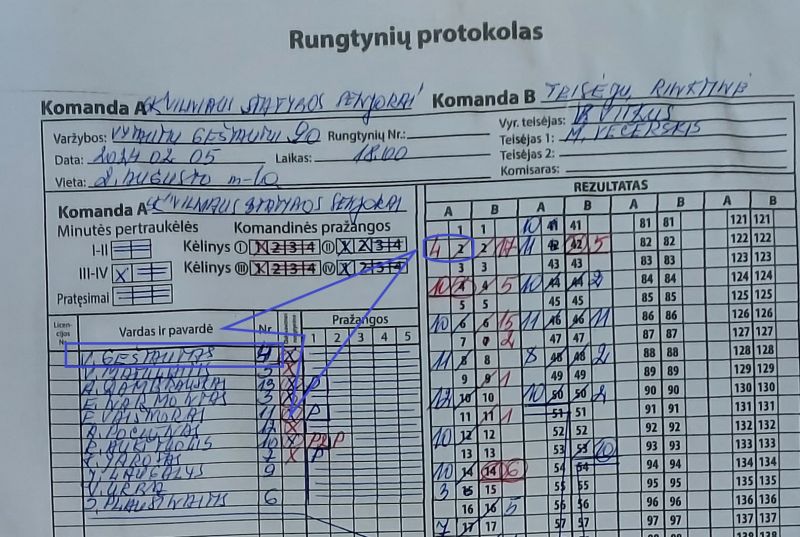 Rungtynių protokolas
Komanda A SK VILNIAUS STATYBOS SENJORAI
Komanda B TEISĖJŲ RINKTINĖ
Varžybos: VYTAUTUI GEŠTAUTUI 90 Rungtynių Nr.:
Data: 2024 02 05 Laikas: 18.00
Vieta: Ž. AUGUSTO m-la
Vyr. teisėjas:
Teisėjas 1: M. VEČERSKIS
Teisėjas 2:
Komisaras:
Komanda A SK VILNIAUS STATYBOS SENJORAI
Minutės pertraukėlės Komandinės pražangos
I-II Kėlinys I X 2 3 4 II X 2 3 4
III-IV X Kėlinys III X 2 3 4 IV X 2 3 4
Pratęsimai
Licencijos Nr. Vardas ir pavardė Nr. Pražangos
1 2 3 4 5
V. GEŠTAUTAS 4 X
5 X
13 X P
E. NARMONTAS 3 X
E. VAIŠMORAS 11 X P
12 X
10 X P P P
7 X P
9
V. URBA
6
REZULTATAS
A B A B A B
1 1 10 41 41 81 81 121 121
4 2 2 17 11 42 42 5 82 82 122 122
3 3 43 43 83 83 123 123
10 4 4 5 10 44 44 2 84 84 124 124
5 5 45 45 85 85 125 125
10 6 6 15 11 46 46 11 86 86 126 126
7 7 2 47 47 87 87 127 127
11 8 8 8 48 48 2 88 88 128 128
9 9 1 49 49 89 89 129 129
12 10 10 10 50 50 2 90 90 130 130
11 11 1 51 51 91 91 131 131
10 12 12 52 52 92 92 132 132
13 13 53 53 10 93 93 133 133
10 14 14 6 54 54 94 94 134 134
3 15 15 55 55 95 95 135 135
16 16 5 56 56 96 96 136 136
7 17 17 57 57 97 97 137 137